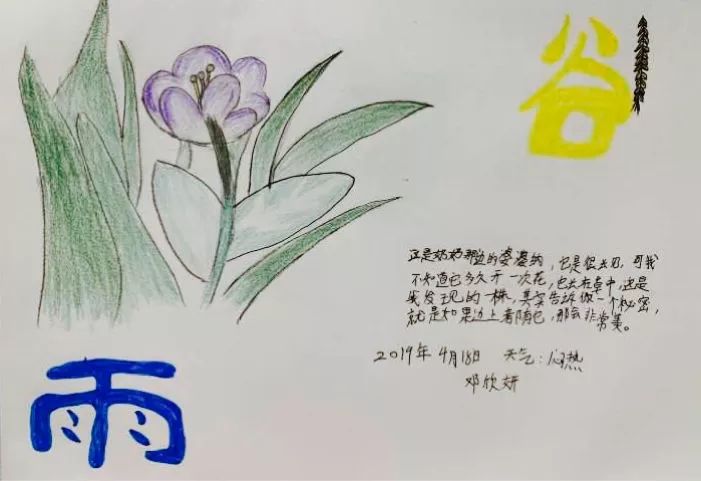 谷
雨
这是奶奶那边的婆婆纳，它是很大的，可我
不知道它多久开一次花，它长在草中，这是
我发现的一棵，其实告诉你一个秘密，
就是如果边上着随它，那会非常美。
2019年4月18日 天气：闷热
邓欣妍